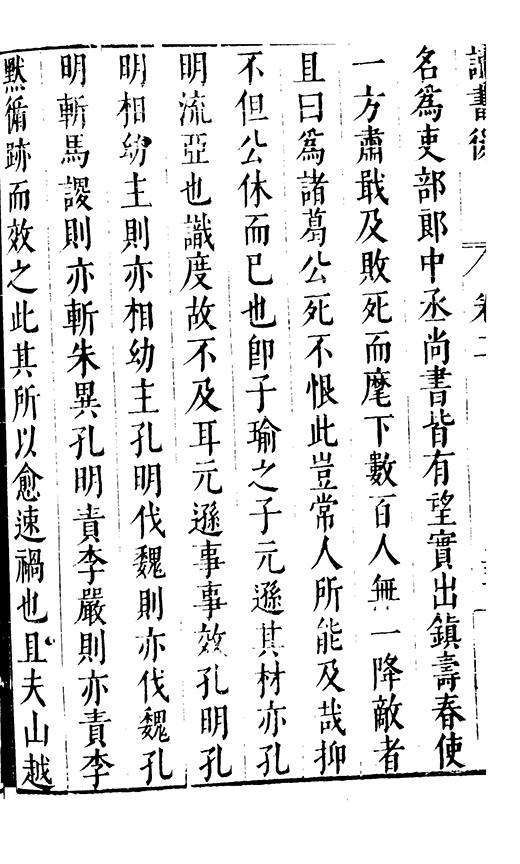 讀書後
卷二
名為吏部郎中丞尚書皆有望實出鎮壽春使
一方肅戢及敗死而麾下數百人無一降敵者
且曰為諸葛公死不恨此豈常人所能及哉抑
不但公休而已也卽子瑜之子元遜其材亦孔
明流亞也識度故不及耳元遜事事效孔明孔
明相幼主則亦相幼主孔明伐魏則亦伐魏孔
明斬馬謖則亦斬朱異孔明責李嚴則亦責李
黙循跡而效之此其所以愈速禍也且夫山越